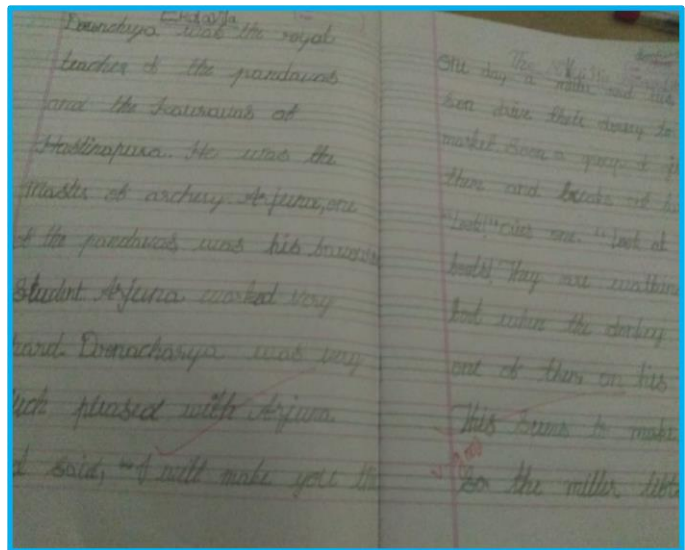 Dronacharya was the royal
teacher of the pandavas
and the Kauravas of
Hastinapura. He was the
Master of archery. Arjuna, one
of the pandavas was his
student. Arjuna worked very
hard. Dronacharya was very
much pleased with Arjuna
said, "I will make you the
The
One day a miller and his
son drive their donkey to
market. Soon a group of
them and breaks out
"Look!" cries one. "Look at
They are walking
but when the donkey
one of them on his
This seems to make
So the miller